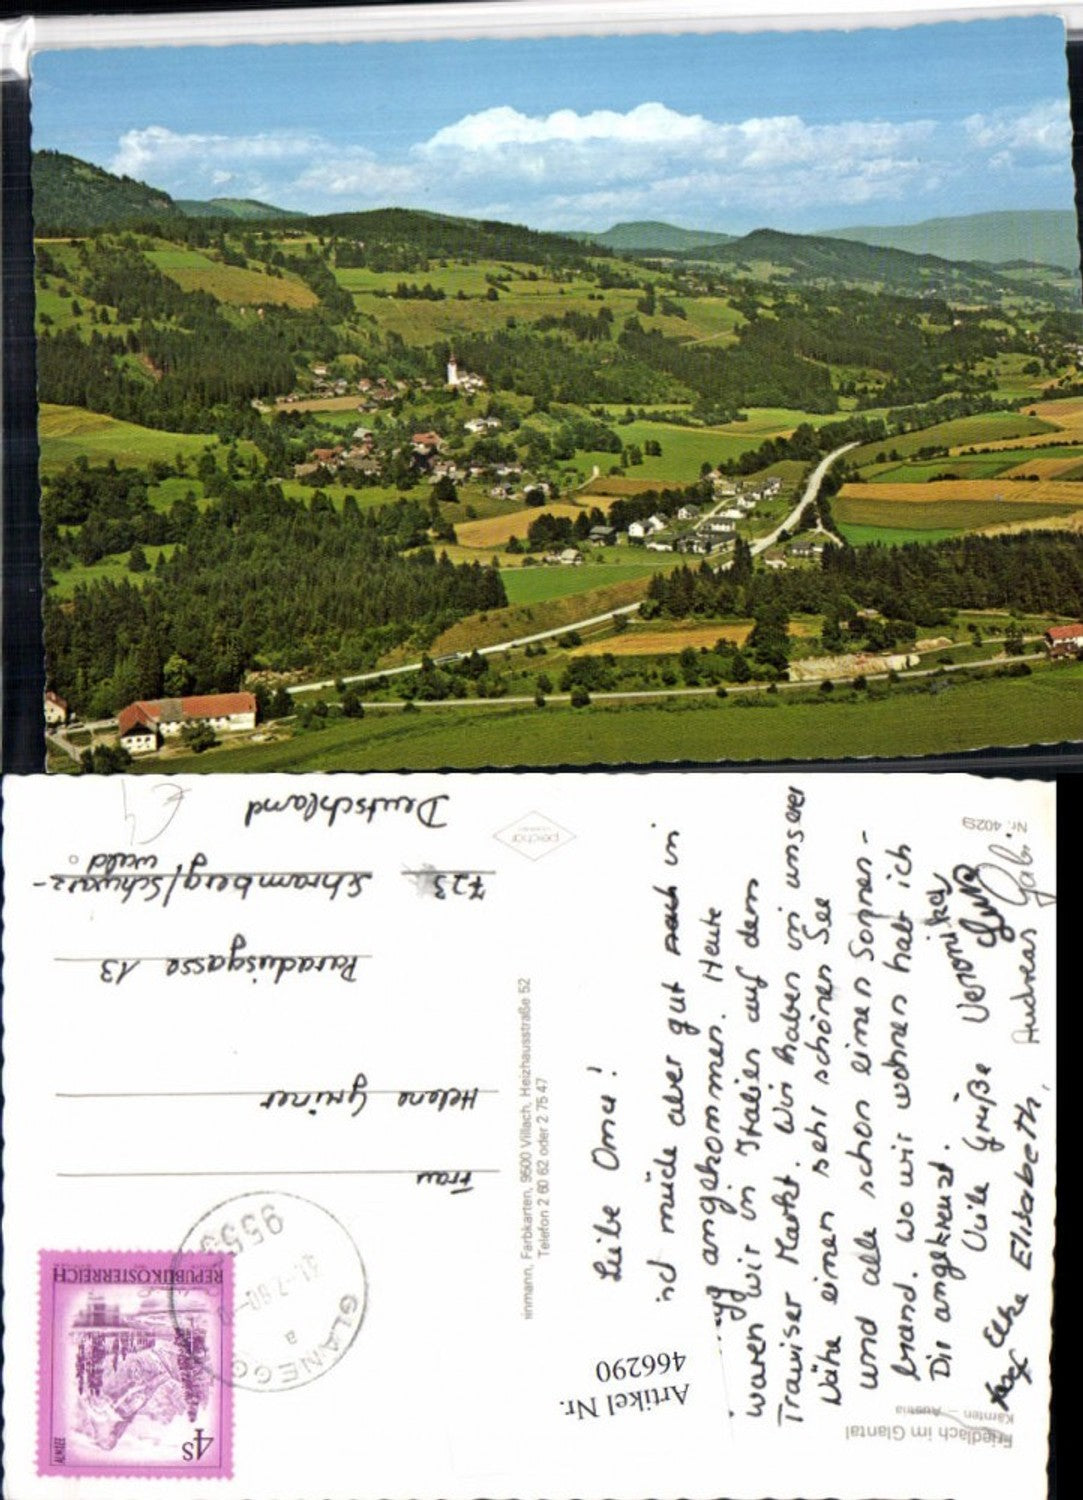 Friedlach im Glantal
Kärnten – Austria
Artikel Nr.
466290
Leibe Oma!
sind müde aber gut nach in
angekommen. Heute
waren wir in Italien auf dem
Traviser Markt. Wir haben in unserer
Nähe einen sehr schönen See
und alle schon einen Sonnen-
brand. Wo wir wohnen hab ich
Dir angekreuzt.
Viele Grüße Veronika
Elke Elisabeth, Andreas Gabi
Nr. 4029
inmann, Farbkarten, 9500 Villach, Heizhausstraße 52
Telefon 2 60 62 oder 2 75 47
REPUBLIK ÖSTERREICH
4S
ALMSEE
GLANEGG
a
Frau
Helene Greiner
Paradiesgasse 13
723 Schramberg/Schwarz-
wald
Deutschland